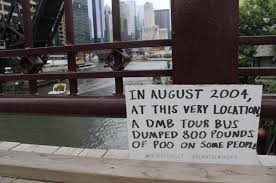 IN AUGUST 2004,
AT THIS VERY LOCATION
A DMB TOUR BUS
DUMPED 800 POUNDS
OF POO ON SOME PEOPLE